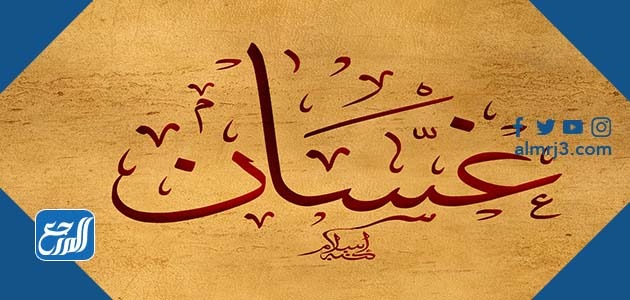 غسّان
almrj3.com
المرجع